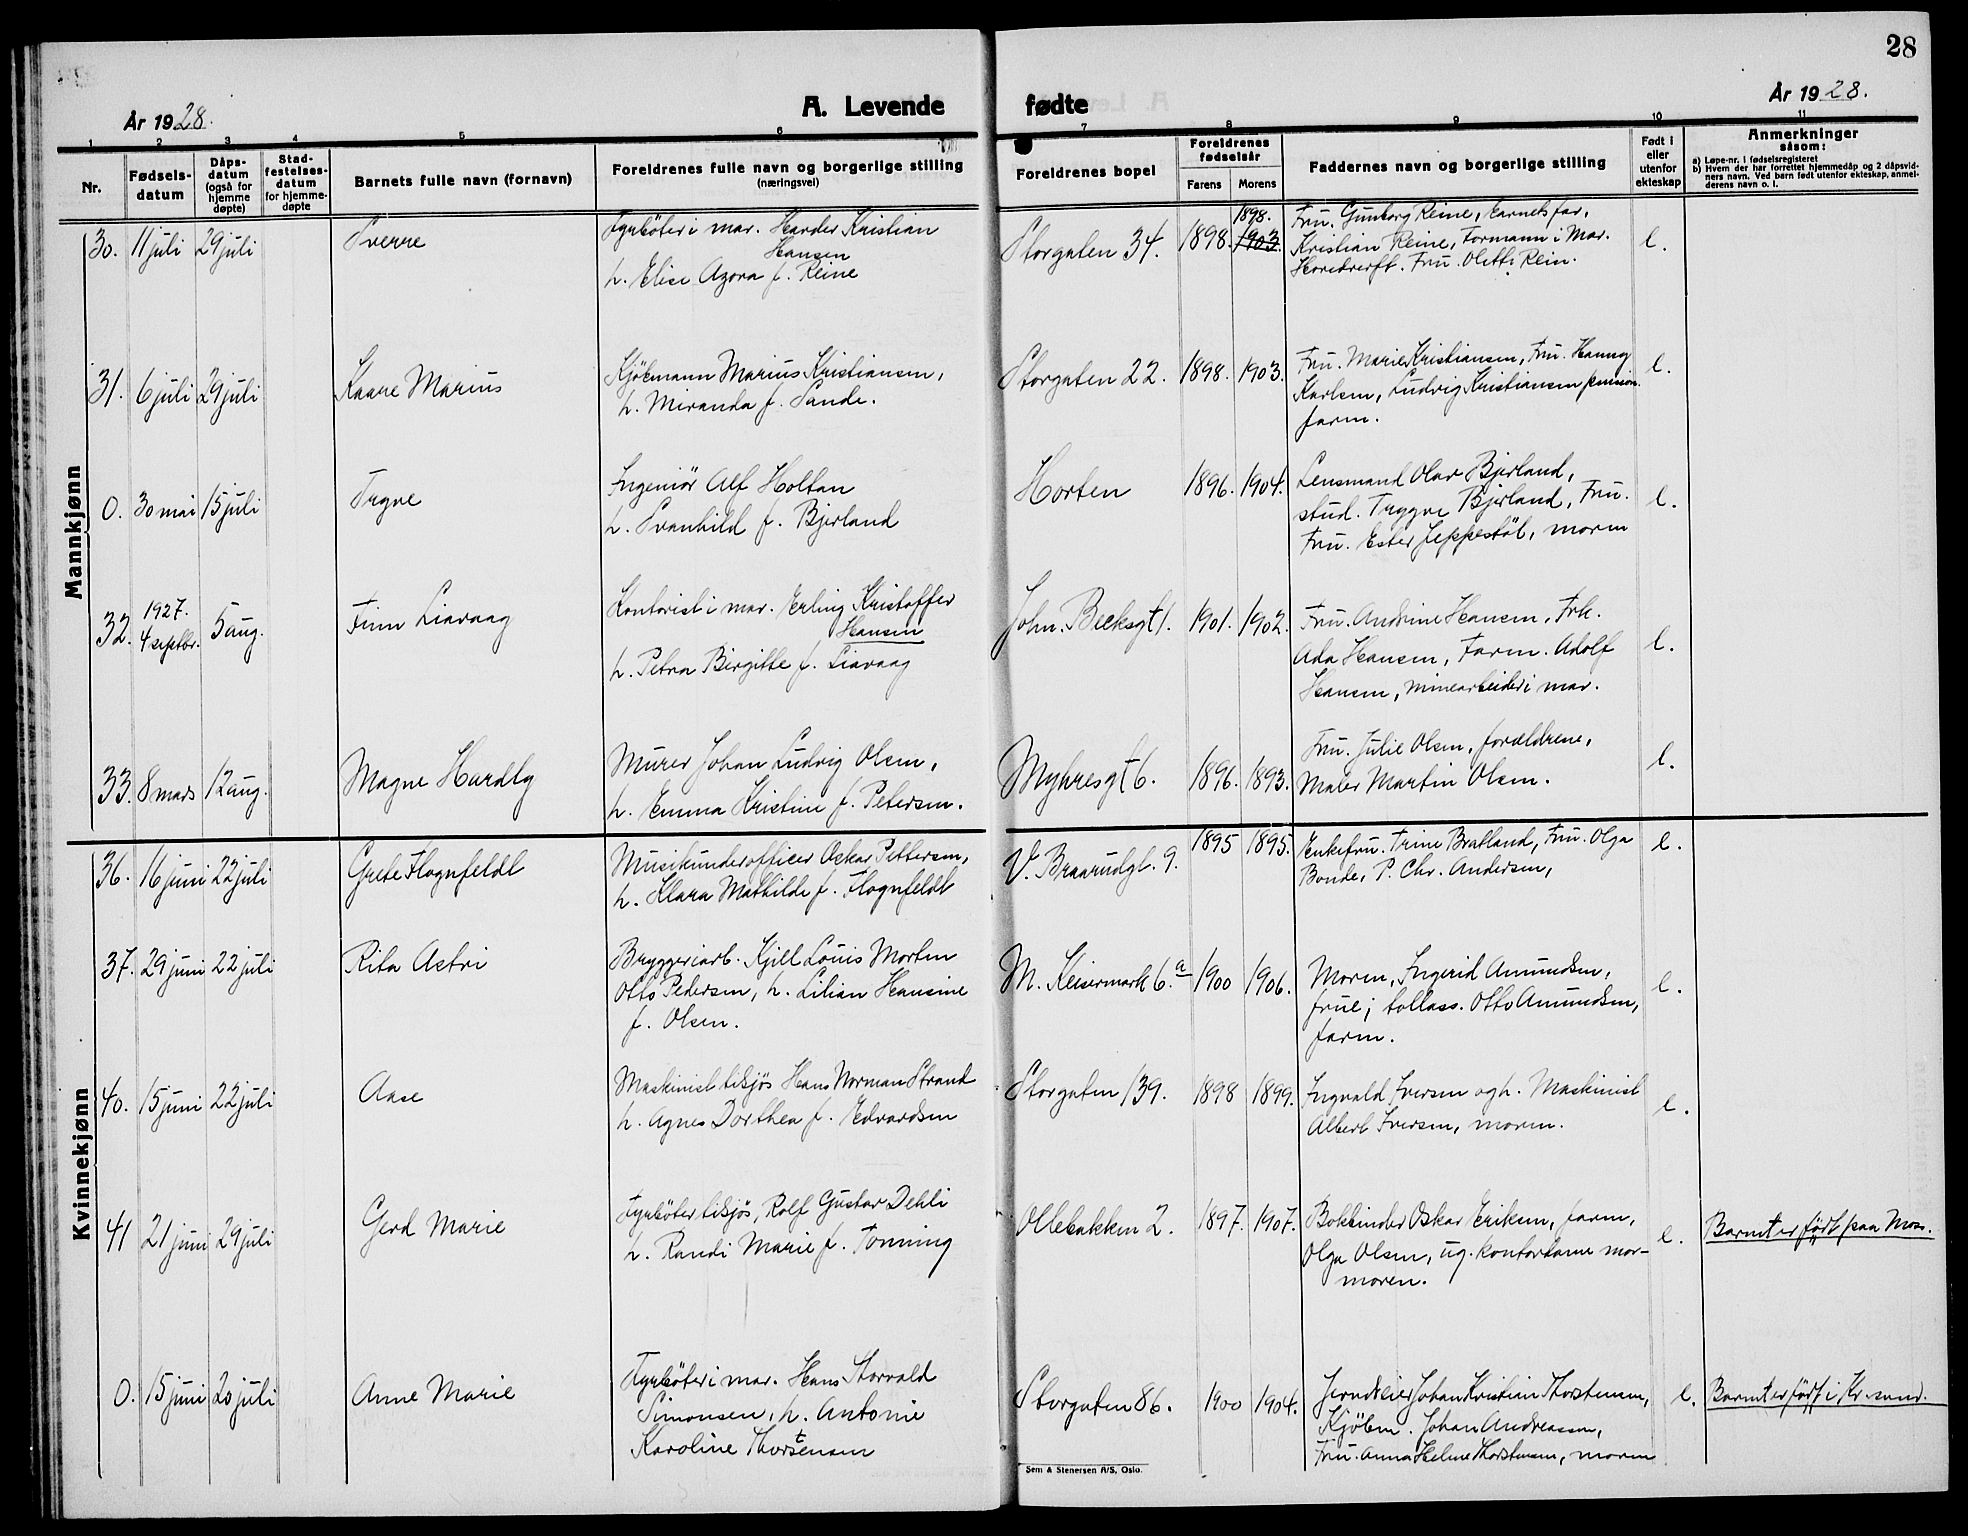 28
År 1928.
A. Levende fødte
År 1928.
1 2 3 4 5 6 7 8 9 10 11
Nr.
Fødsels-
datum
Dåps-
datum
(også for
hjemme
døpte)
Stad-
festelses-
datum
for hjemme-
døpte
Barnets fulle navn (fornavn)
Foreldrenes fulle navn og borgerlige stilling
(næringsvei)
Foreldrenes bopel
Foreldrenes
fødselsår
Farens Morens
Faddernes navn og borgerlige stilling
Født i
eller
utenfor
ekteskap
Anmerkninger
såsom:
a) Løpe-nr. i fødselsregisteret
b) Hvem der har forrettet hjemmedåp og 2 dåpsvid-
ners navn. Ved barn født utenfor ekteskap, anmel-
derens navn o. l.
Mannkjønn
30. 11 juli 29 juli
Sverre
Fyrbøter i mar. Hander Kristian
Hansen
h. Elise Azora f. Reine
Storgaten 34.
1898. 1903.
1898.
Fru. Gunborg Reine, barnets far,
Kristian Reine, Formann i Mar.
Hovedverft. Fru. Olette Rein.
e.
31. 6 juli 29 juli
Kaare Marius
Kjökmann Marius Kristiansen,
h. Meranda f. Sande.
Storgaten 22.
1898. 1903.
Fru. Marie Kristiansen, Fru. Hanny
Karlsen, Ludvig Kristiansen pension.
farm.
e.
0. 30 mai 15 juli
Trgve
Ingeniör Alf Holtan
h. Svanhild f. Bjerland
Horten
1896. 1904.
Lensmand Olav Bjerland,
stud. Tryggve Bjerland, Fru.
Fru. Ester Jeppestöl, moren
e.
32. 1927.
4 septbr. 5 aug.
Finn Liavaag
Kontorist i mar. Erling Kristoffer
Hansen
h. Petra Birgitte f. Liavaag
John. Becksgt 1.
1901. 1902.
Fru. Andrine Hansen, Frk.
Ada Hansen, Farm. Adolf
Hansen, minearbeider i mar.
e.
33. 8 mars 12 aug.
Magne Hurdly
Murer Johan Ludvig Olsen,
h. Emma Kristine f. Petersen.
Myhresgt 6.
1896. 1893.
Fru. Julie Olsen, forældrene,
Maler Martin Olsen.
e.
Kvinnekjønn
36. 16 juni 22 juli
Grete Flognfeldt
Musikunderofficer Oskar Pettersen,
h. Klara Mathilde f. Flognfeldt
V. Braarudgt. 9.
1895 1895.
Enkefru. Trine Bratland, Fru. Olga
Bonde, P. Chr. Andersen,
e.
37. 29 juni 22 juli
Rita Astri
Bryggeriarb. Kjell Louis Morten
Otto Pedersen, h. Lilian Hansine
f. Olsen.
M. Keisermark 6.a
1900 1906.
Moren, Ingerid Amundsen,
frue; tollass. Otto Amundsen,
farm.
e.
40. 15 juni 22 juli
Aase
Maskinist tilsjös Hans Norman Strand
h. Agnes Dorthea f. Edvardsen
Storgaten 139.
1898 1899.
Ingvald Iversen og h. Maskinist
Albert Iversen, moren.
e.
41 21 juni 29 juli
Gerd Marie
Fyrböter tilsjös, Rolf Gustav Dehli
h. Randi Marie f. Tonning
Ollebakken 2.
1897. 1907.
Bokbinder Oskar Eriksen, farm,
Olga Olsen, ug. kontordame mor-
moren.
e.
Barnet er födt paa Moss.
0. 15 juni 20 juli
Anne Marie
Fyrböter i mar. Hans Thorvald
Simonsen, h. Antonie
Karoline Thorstensen
Storgaten 86.
1900 1904.
Jerndreier Johan Kristian Thorstensen,
Kjöbm. Johan Andreassen,
Fru. Anna Helene Thorstensen, moren
e.
Barnet er födt i Kr.sund.
Sem & Stenersen A/S, Oslo.